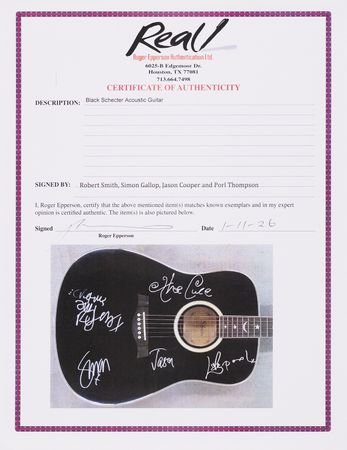 Real!
Roger Epperson Authentication Ltd.
6025-B Edgemoor Dr.
Houston, TX 77081
713.664.7498
CERTIFICATE OF AUTHENTICITY
DESCRIPTION: Black Schecter Acoustic Guitar
SIGNED BY: Robert Smith, Simon Gallop, Jason Cooper and Porl Thompson
I, Roger Epperson, certify that the above mentioned item(s) matches known exemplars and in my expert
opinion is certified authentic. The item(s) is also pictured below.
Signed Date 1-11-26
Roger Epperson
The Cure
Simon
Jason